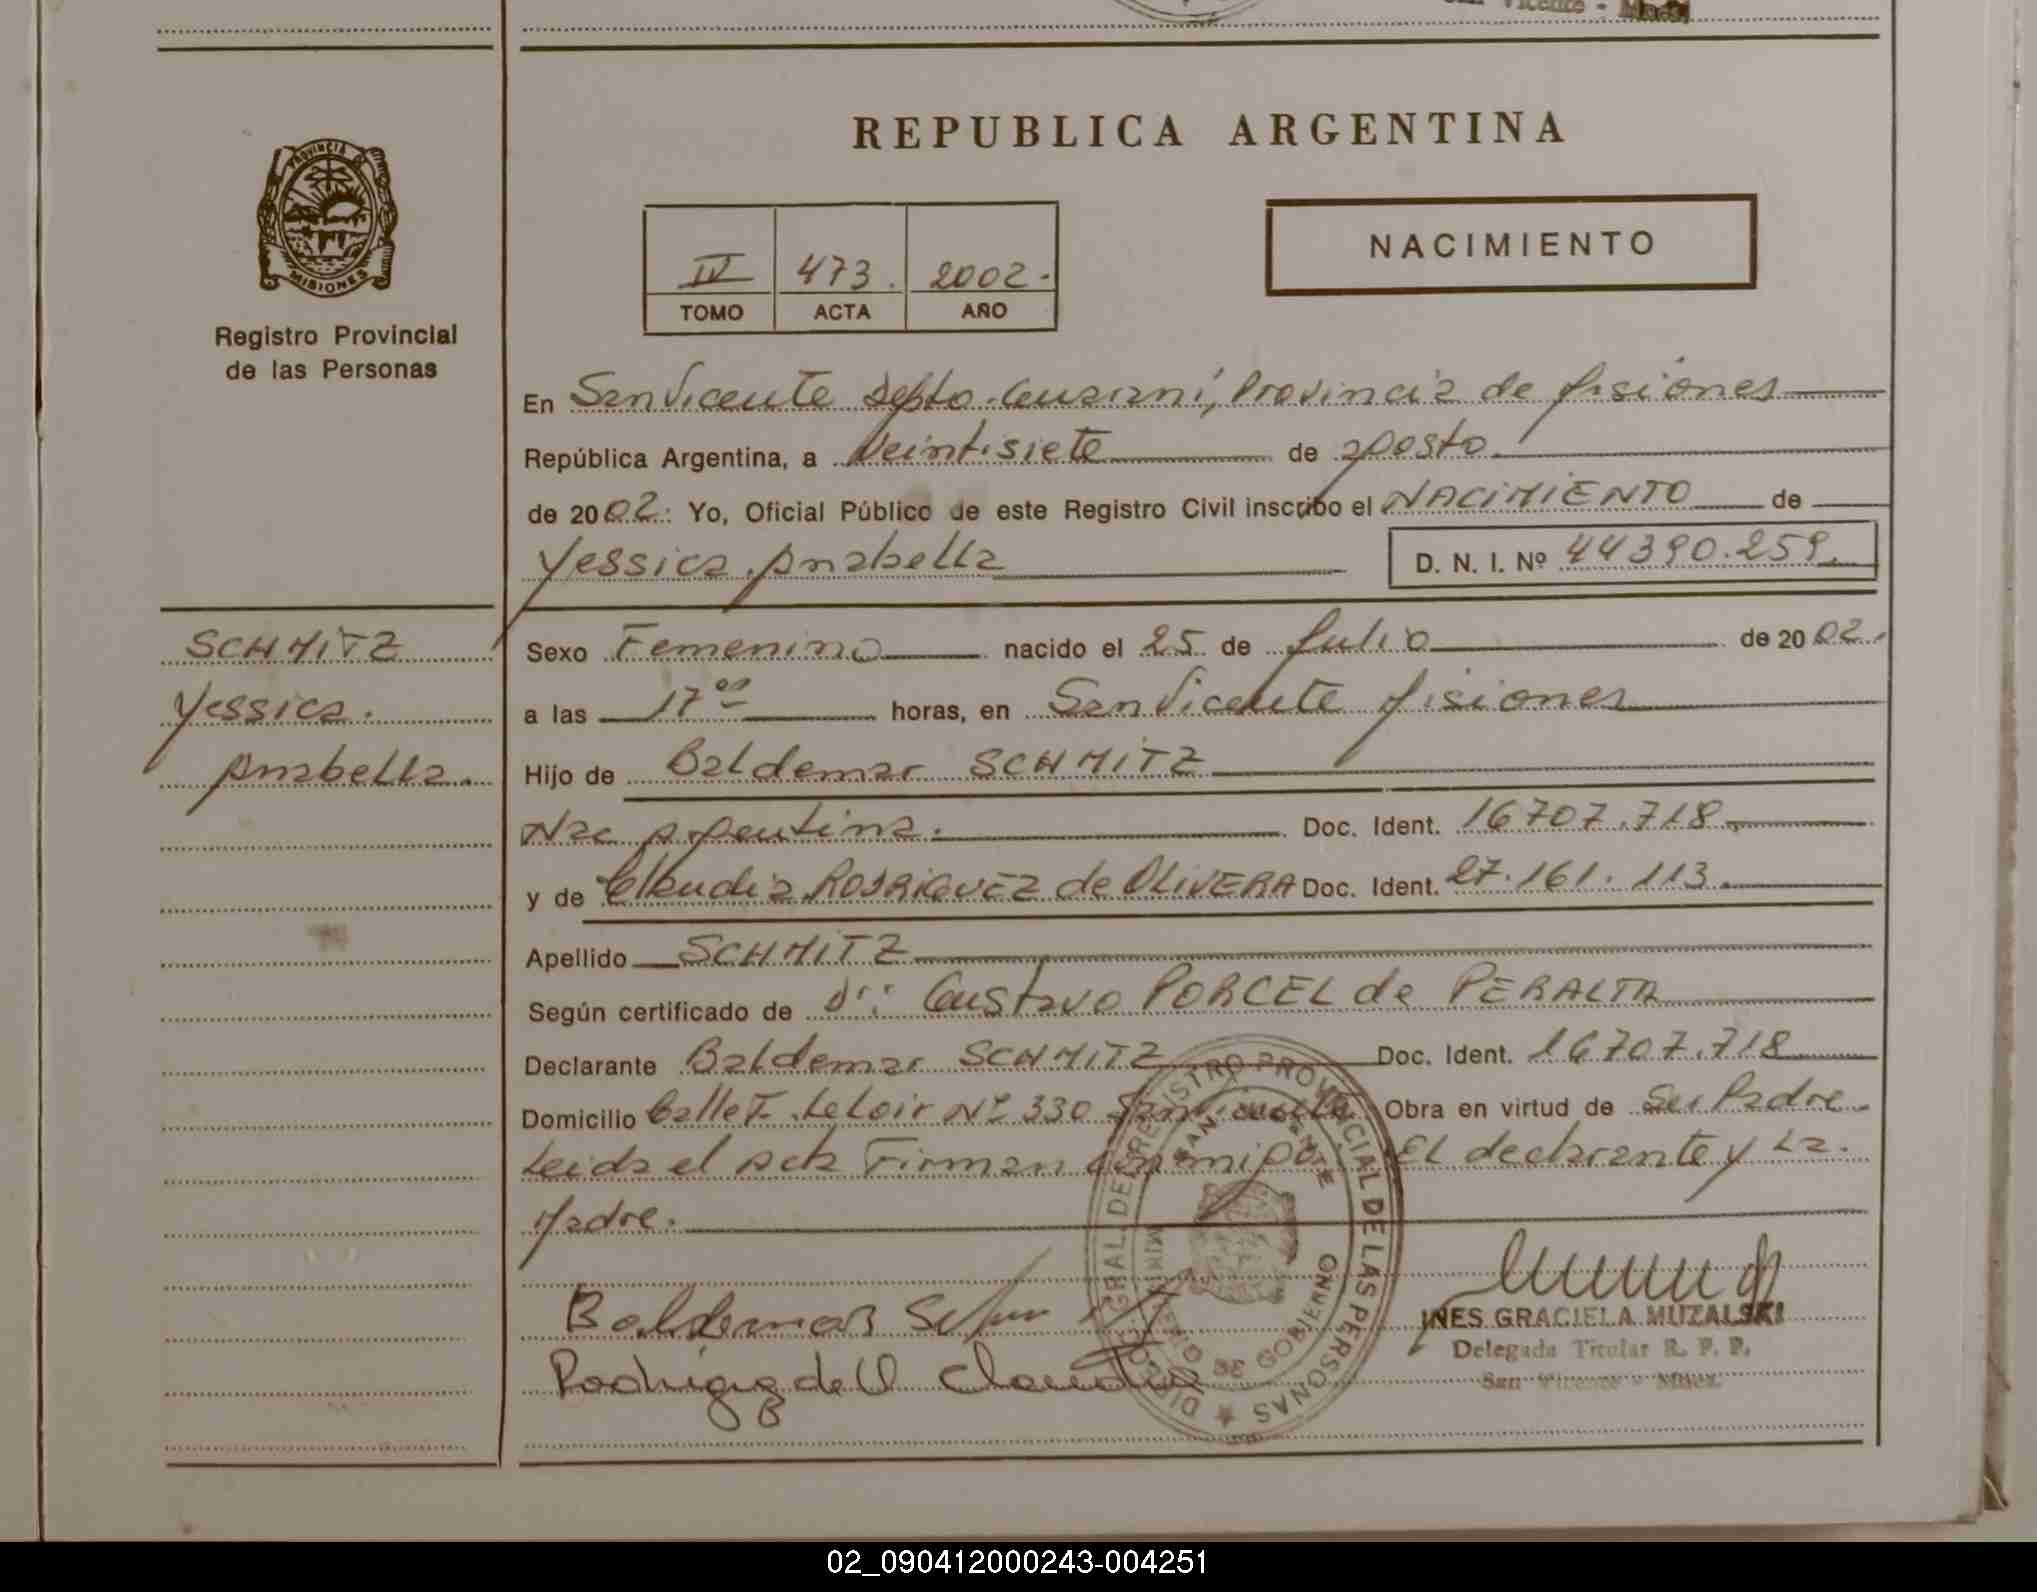 San Vicente - Mnes.
PROVINCIA DE
MISIONES
Registro Provincial
de las Personas
REPUBLICA ARGENTINA
IV 473. 2002.-
TOMO ACTA AÑO
NACIMIENTO
En San Vicente Depto. Guaraní, Provincia de Misiones
República Argentina, a Veintisiete de agosto
de 2002. Yo, Oficial Público de este Registro Civil inscribo el NACIMIENTO de
Yessica Anabella D. N. I. Nº 44390.259.
SCHMITZ
Yessica.
Anabella.
Sexo Femenino nacido el 25 de Julio de 2002.
a las 17⁰⁰ horas, en San Vicente Misiones
Hijo de Baldemar SCHMITZ
Nac Argentina. Doc. Ident. 16707.718
y de Claudia RODRIGUEZ de OLIVERA Doc. Ident. 27.161.113.
Apellido SCHMITZ
Según certificado de Dr: Gustavo PORCEL de PERALTA
Declarante Baldemar SCHMITZ Doc. Ident. 16707.718
Domicilio Calle F. Leloir Nº 330 San Vicente Obra en virtud de Su Padre.
Leida el Acta Firman conmigo El declarante y La.
Madre.
Baldemar
Rodriguez de O Claudia
DIRECC. GRAL. DEL REGISTRO PROVINCIAL DE LAS PERSONAS
SAN VICENTE
MINISTERIO DE GOBIERNO
INES GRACIELA MUZALSKI
Delegada Titular R. P. P.
San Vicente - Mnes.
02_090412000243-004251